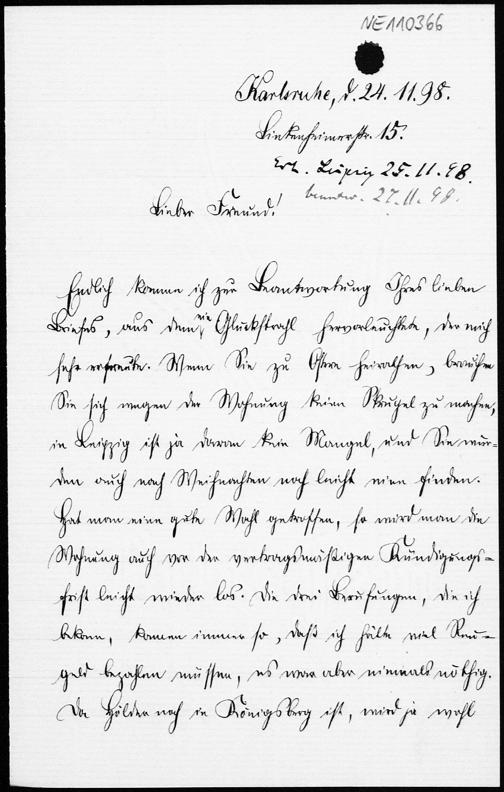 NE110366
Karlsruhe, d. 24.11.98.
Linkenheimerstr. 15.
Erh. Leipzig 25.11.98.
beantw. 27.11.98.
Lieber Freund!
Endlich komme ich zur Beantwortung Ihres lieben
Briefes, aus dem ein Glückstrahl hervorleuchtete, der mich
sehr erfreute. Wenn Sie zu Ostern heirathen, brauchen
Sie sich wegen der Wohnung keine Skrupel zu machen,
in Leipzig ist ja daran kein Mangel, und Sie wür-
den auch nach Weihnachten noch leicht eine finden.
Hat man eine gute Wahl getroffen, so wird man die
Wohnung auch vor der vertragsmäßigen Kündigungs-
frist leicht wieder los. Die drei Berufungen, die ich
bekam, kamen immer so, daß ich hätte viel Reu-
geld bezahlen müssen, es war aber niemals nöthig.
Da Hölder noch in Königsberg ist, wird ja wohl